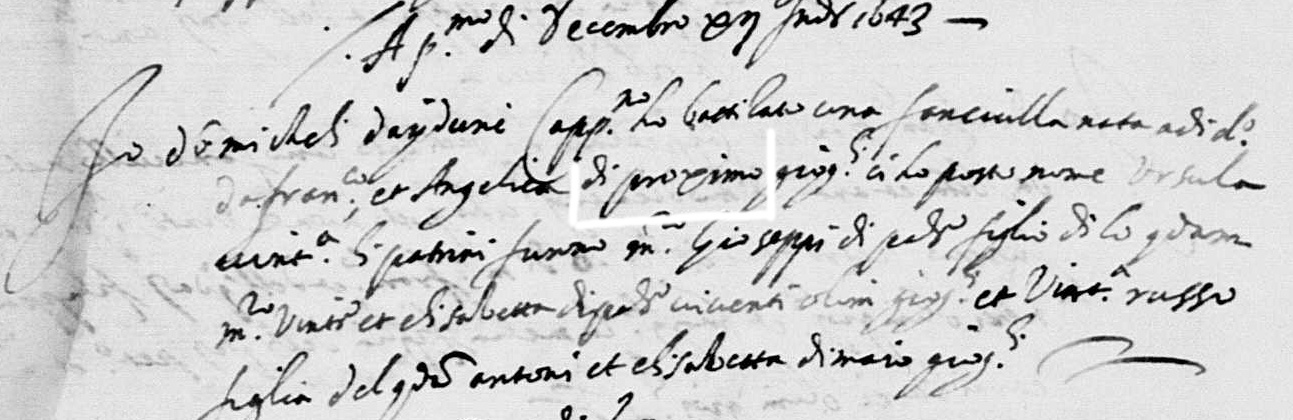 A p.mo di Decembro xij Ind. 1643
Io Do micheli dayduni Capp.no ho battizato una fanciulla nata adi d.o
da fran.co et Angelica di proximo giog.li ci ho posto nome Ursula
vint.a li patrini furno m.ro Gioseppi di pad. figlio di lo qdam
m.ro Vint. et elisabetta di pad. viventi olim giog.li et Vint.a russo
figlia del qd. antoni et elisabetta di maio giog.li